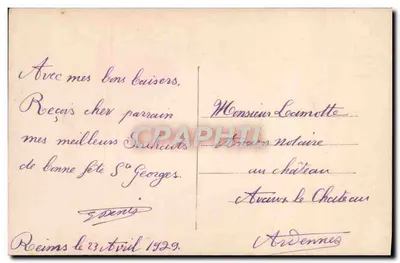 Avec mes bons baisers,
Reçois cher parrain
mes meilleurs Souhaits
de bonne fête St Georges.
G Denis
Reims le 23 Avril 1929.
Monsieur Lamotte
Ancien notaire
au château
Avaux le Chateau
Ardennes
CPAPHIL